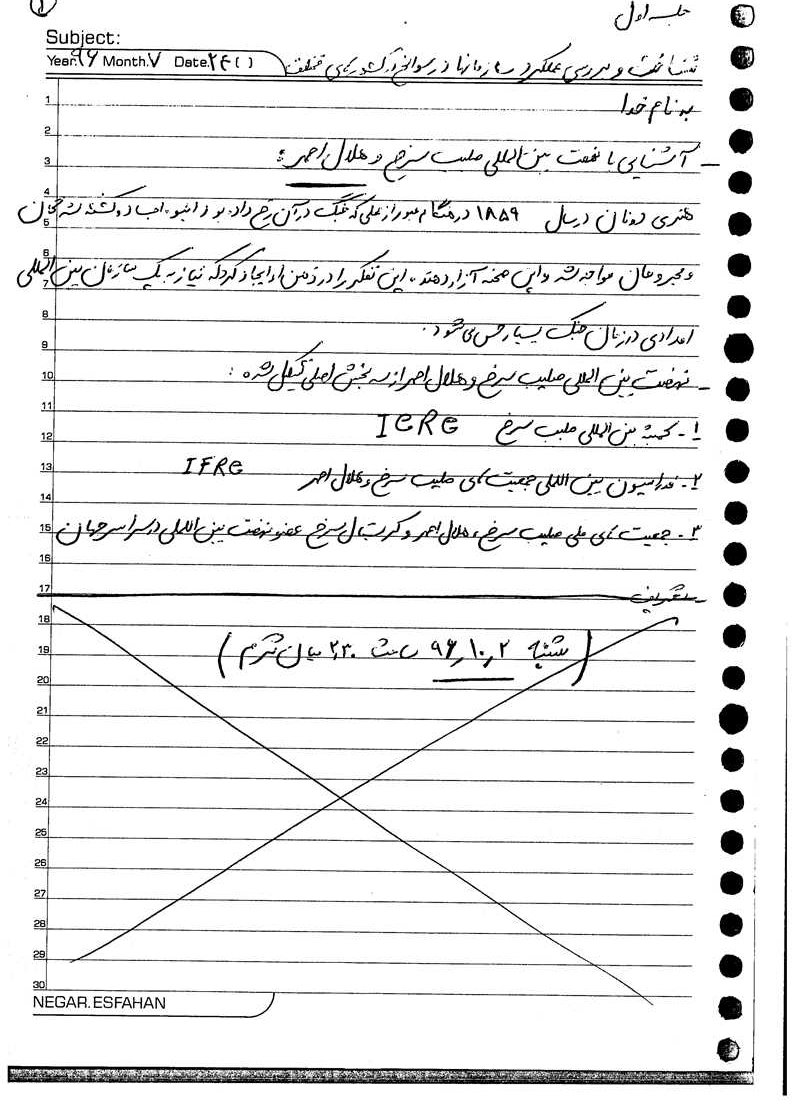 ①
جلسه اول
Subject:
Year. ۹۶ Month. ۷ Date. ۲۴ ( )
شناخت و بررسی عملکرد سازمانها در سوانح در کشورهای مختلف
به نام خدا
– آشنایی با نهضت بین المللی صلیب سرخ و هلال احمر :
هنری دونان در سال ۱۸۵۹ در هنگام عبور از محلی که جنگ در آن رخ داده بود با انبوه اجساد و کشته شدگان
و مجروحان مواجه شد و این صحنه آزار دهنده، این تفکر را در ذهن او ایجاد کرد که نیاز به یک سازمان بین المللی
امدادی در زمان جنگ بسیار حس می شود.
– نهضت بین المللی صلیب سرخ و هلال احمر از سه بخش اصلی تشکیل شده :
۱- کمیته بین المللی صلیب سرخ ICRC
۲- فدراسیون بین المللی جمعیت های صلیب سرخ و هلال احمر IFRC
۳- جمعیت های ملی صلیب سرخ، هلال احمر و کریستال سرخ عضو نهضت بین المللی در سراسر جهان
(شنبه ۹۶٫۱۰٫۲ ساعت ۲٫۳۰ میان ترم)
1
2
3
4
5
6
7
8
9
10
11
12
13
14
15
16
17
18
19
20
21
22
23
24
25
26
27
28
29
30
NEGAR.ESFAHAN